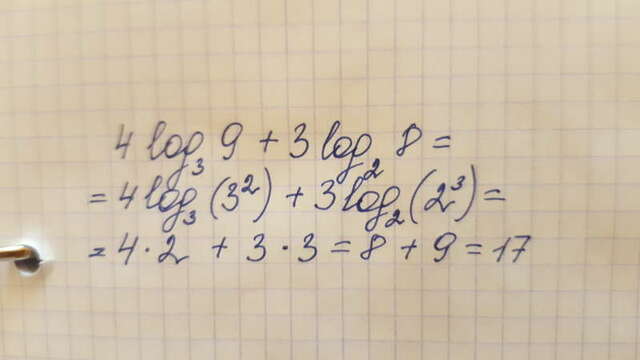 4 log₃ 9 + 3 log₂ 8 =
= 4 log₃ (3²) + 3 log₂ (2³) =
= 4 · 2 + 3 · 3 = 8 + 9 = 17